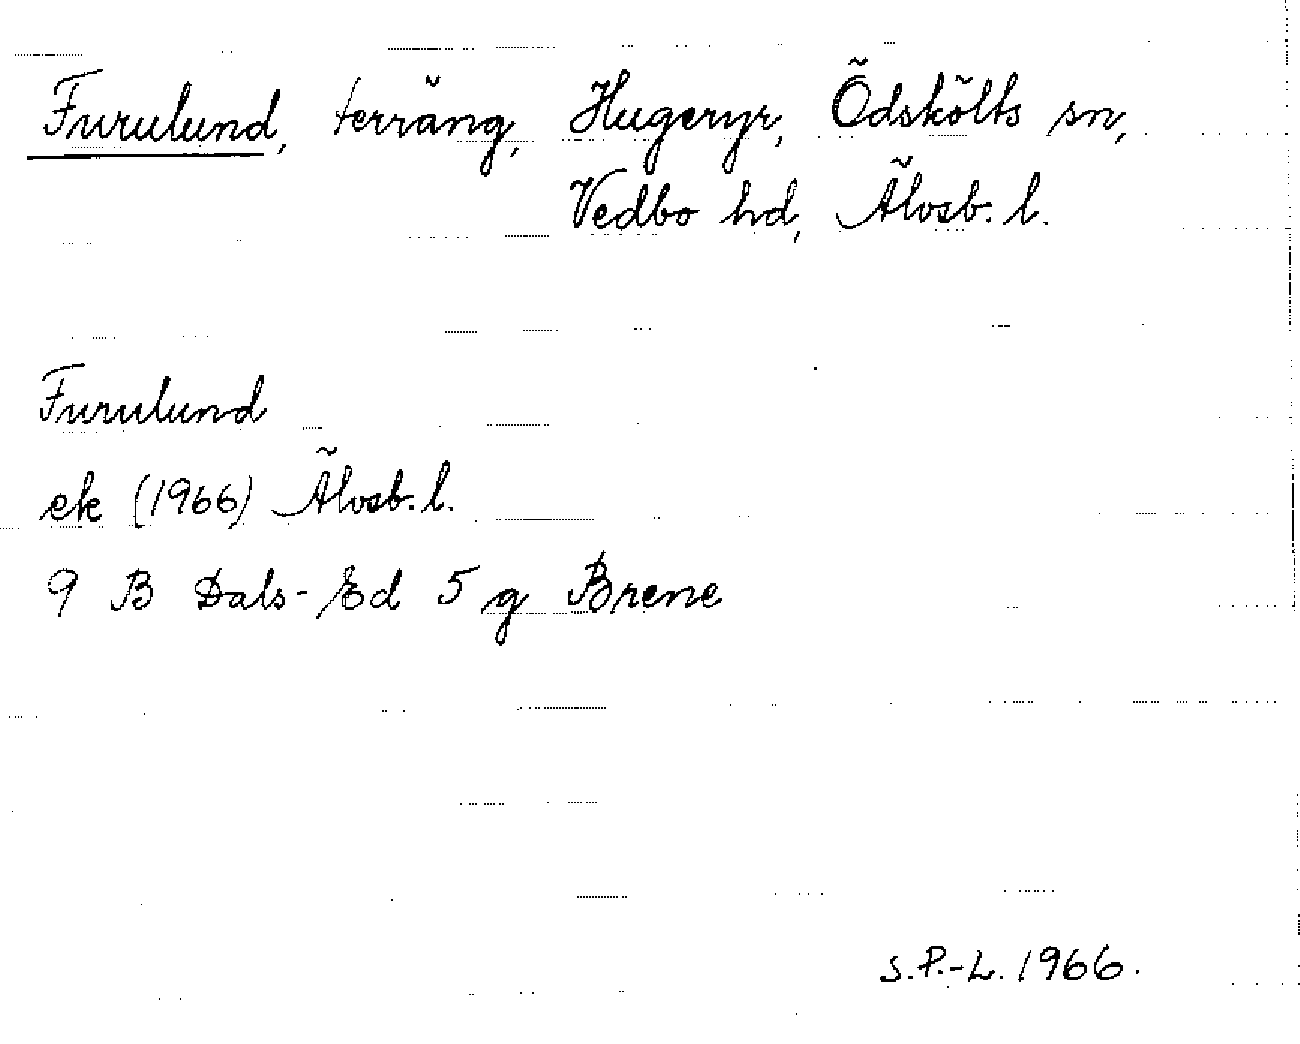 Furulund, terräng, Hugeryr, Ödskölts sn,
Vedbo hd, Älvsb. l.
Furulund
ek (1966) Älvsb. l.
9 B Dals-Ed 5 g Brene
S.P.-L. 1966.